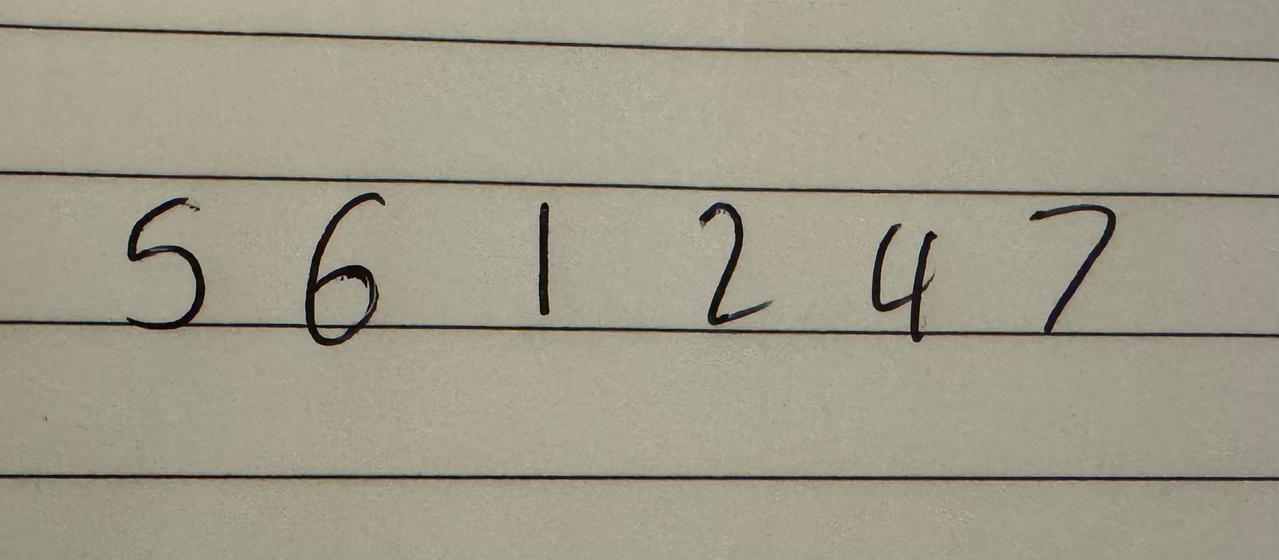 5 6 1 2 4 7